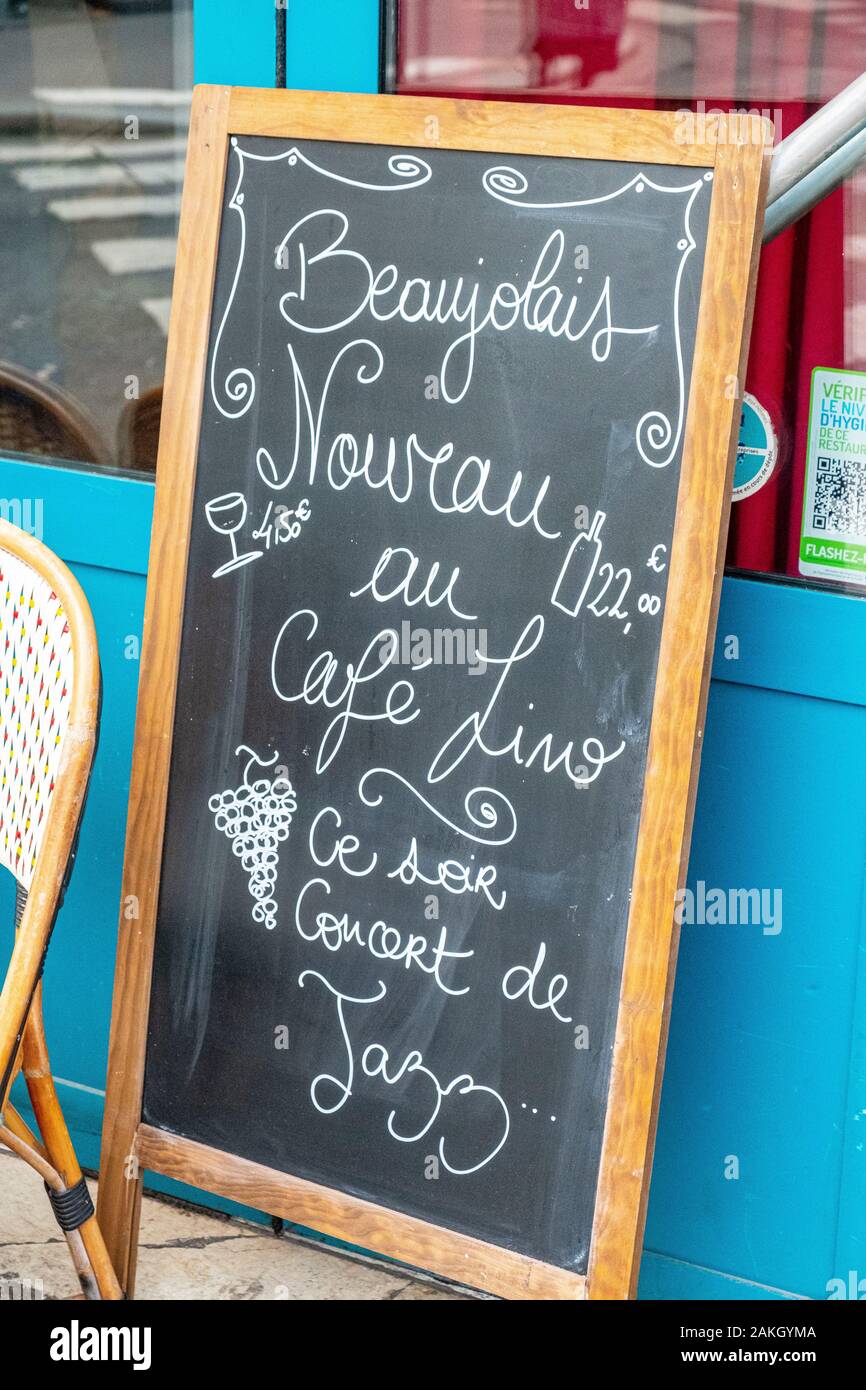 Beaujolais
Nouveau
4,50€
au
22,00€
Café Lino
Ce soir
Concert de
Jazz...
VÉRIF
LE NIV
D'HYGI
DE CE
RESTAUR
FLASHEZ-
alamy
Image ID: 2AKGYMA
www.alamy.com